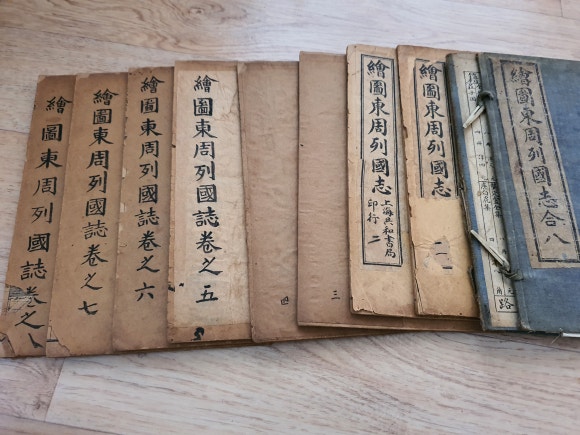 繪圖東周列國志合八
繪圖東周列國志
繪圖東周列國志
上海共和書局
印行
二
三
四
繪圖東周列國誌卷之五
繪圖東周列國誌卷之六
繪圖東周列國誌卷之七
繪圖東周列國誌卷之八